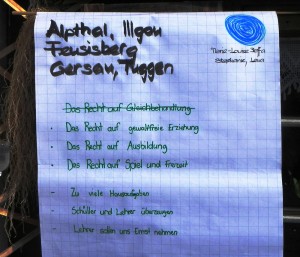 Alpthal, Illgau
Feusisberg
Gersau, Tuggen
Stephanie, Levi
Das Recht auf Gleichbehandlung
- Das Recht auf gewaltfreie Erziehung
- Das Recht auf Ausbildung
- Das Recht auf Spiel und Freizeit
- Zu viele Hausaufgaben
- Schüller und Lehrer überzeugen
- Lehrer sollen uns Ernst nehmen